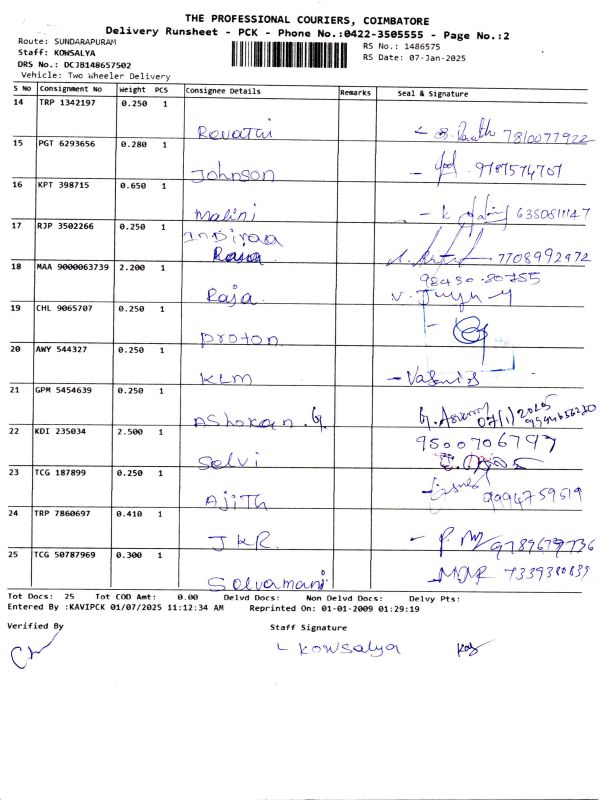 THE PROFESSIONAL COURIERS, COIMBATORE
Delivery Runsheet - PCK - Phone No.:0422-3505555 - Page No.:2
Route: SUNDARAPURAM RS No.: 1486575
Staff: KOWSALYA RS Date: 07-Jan-2025
DRS No.: DCJB148657502
Vehicle: Two Wheeler Delivery
S No Consignment No Weight PCS Consignee Details Remarks Seal & Signature
14 TRP 1342197 0.250 1
Revathi 7810077922
15 PGT 6293656 0.280 1
Johnson 9787574707
16 KPT 398715 0.650 1
Malini 6380511147
17 RJP 3502266 0.250 1 Indiraa
Raja 7708992972
18 MAA 9000063739 2.200 1 98430 80755
Raja
19 CHL 9065707 0.250 1
Proton
20 AWY 544327 0.250 1
KLM
21 GPM 5454639 0.250 1
Ashokan. G. 07/1/2025
22 KDI 235034 2.500 1 9500706797
Selvi
23 TCG 187899 0.250 1
Ajith 9994759519
24 TRP 7860697 0.410 1
JKR 9789679736
25 TCG 50787969 0.300 1
Selvamani 7339380839
Tot Docs: 25 Tot COD Amt: 0.00 Delvd Docs: Non Delvd Docs: Delvy Pts:
Entered By :KAVIPCK 01/07/2025 11:12:34 AM Reprinted On: 01-01-2009 01:29:19
Verified By Staff Signature
Kowsalya